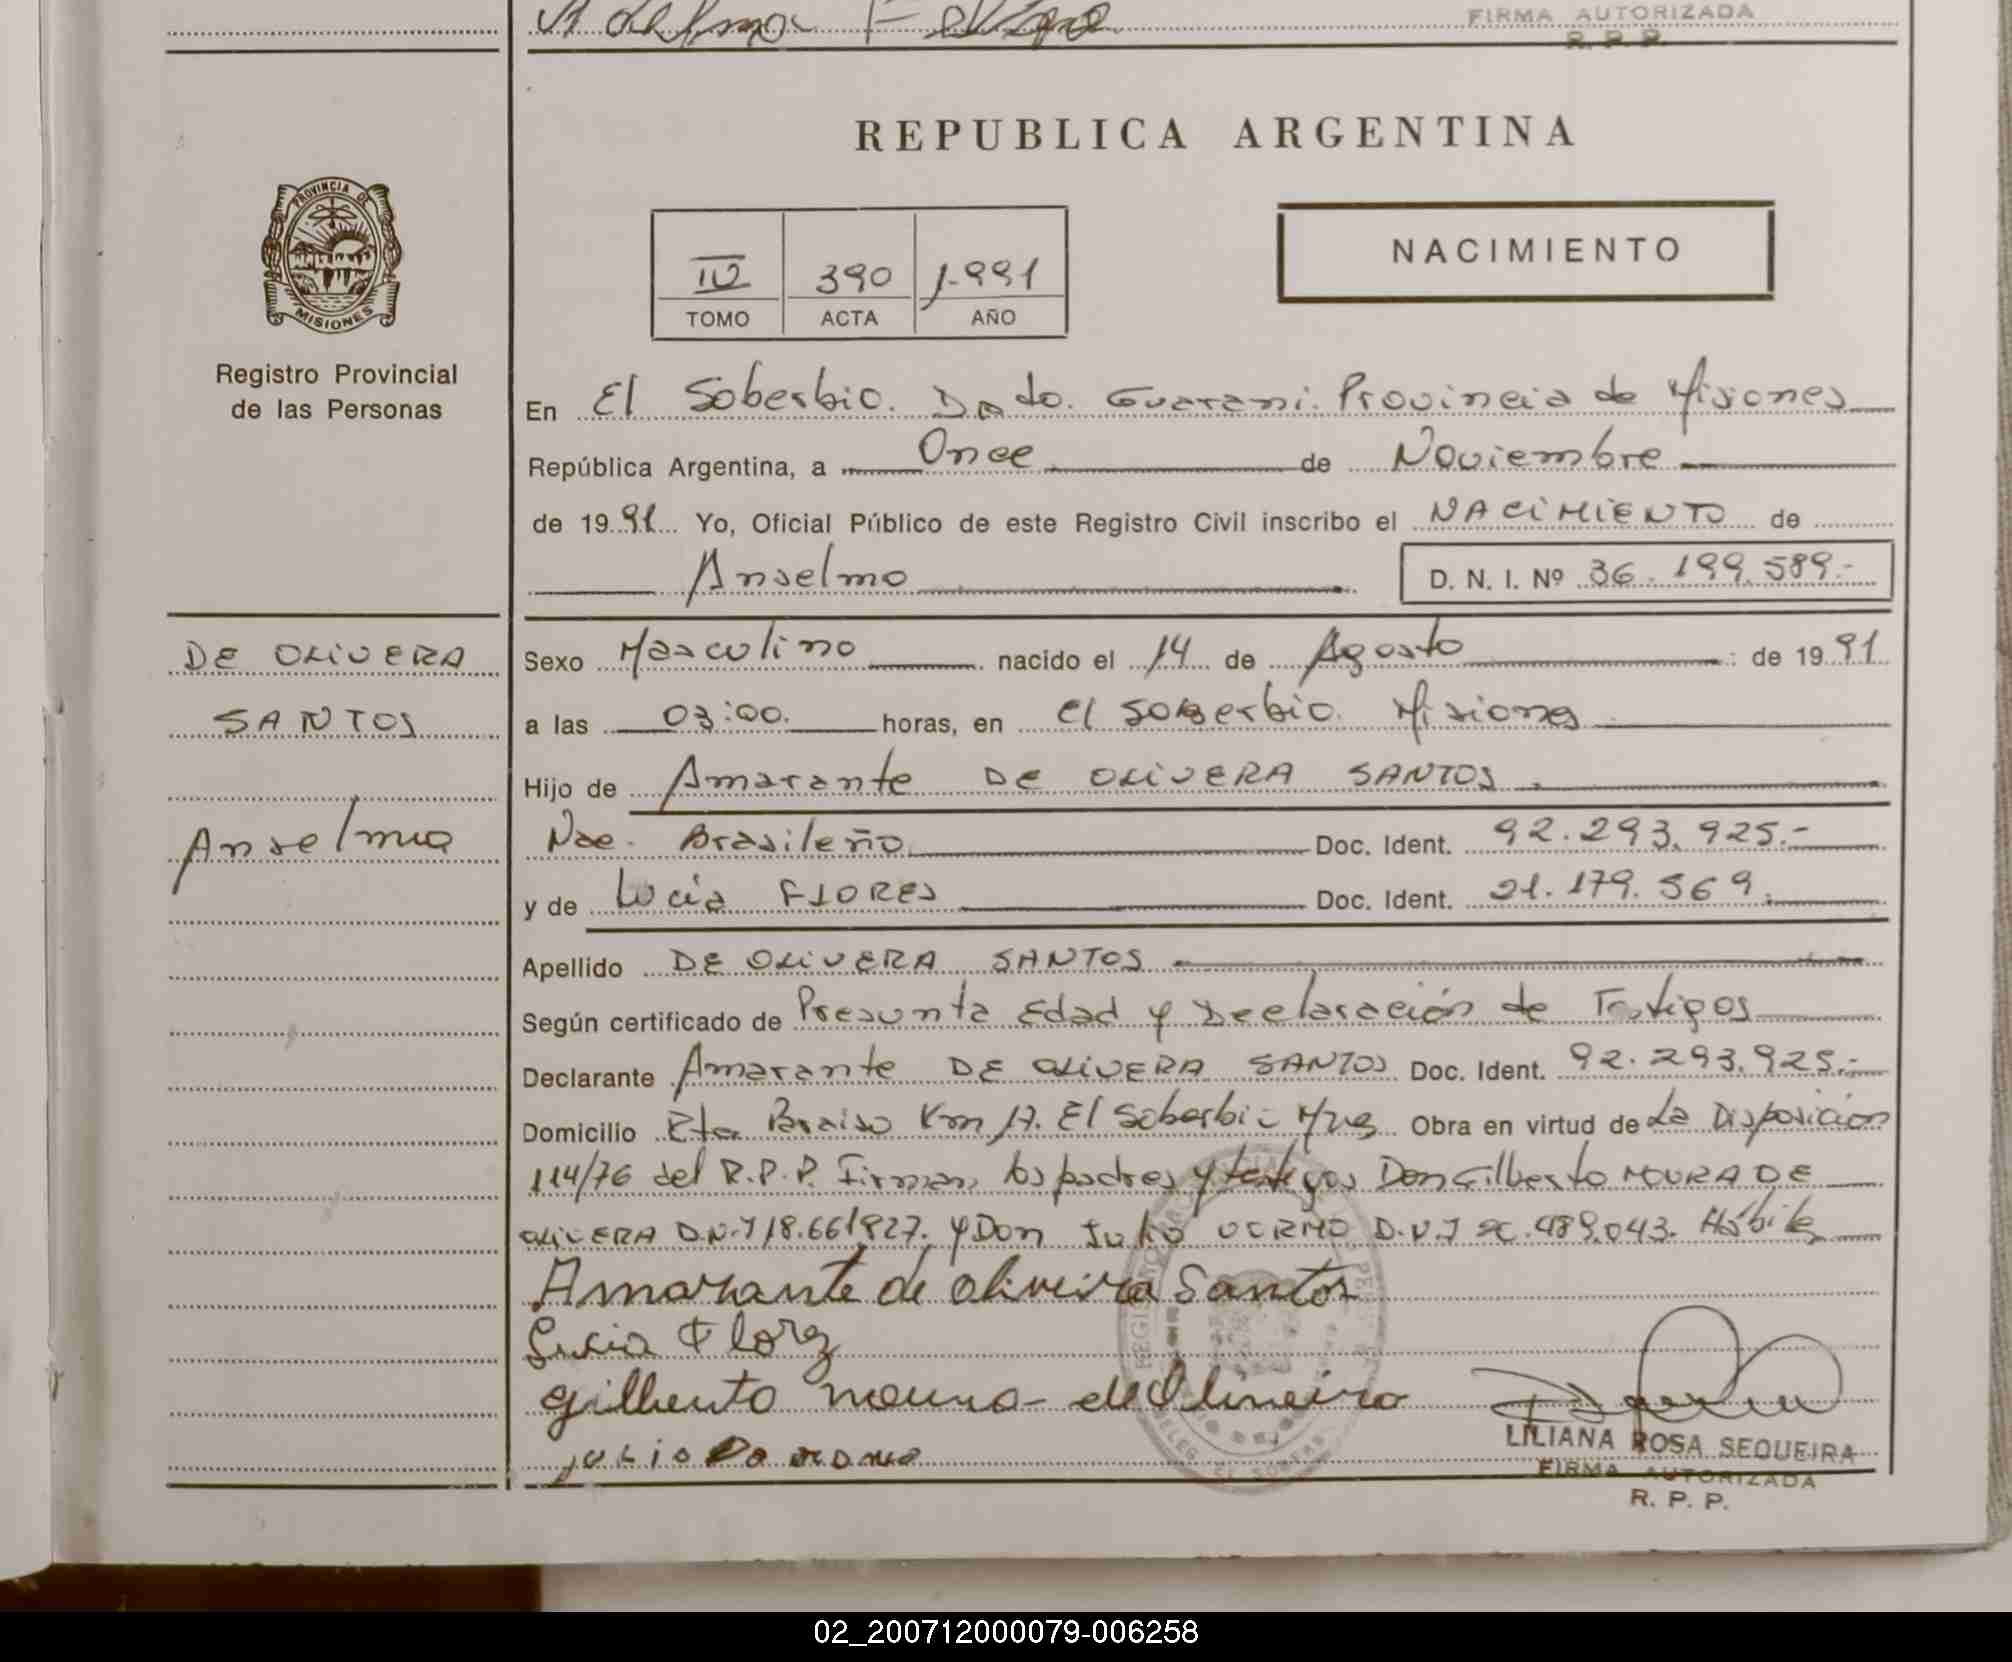 FIRMA AUTORIZADA
R. P. P.
REPUBLICA ARGENTINA
PROVINCIA DE
MISIONES
Registro Provincial
de las Personas
IV 390 1.991
TOMO ACTA AÑO
NACIMIENTO
En El Soberbio. Dpto. Guarani. Provincia de Misiones
República Argentina, a Once de Noviembre
de 1991 Yo, Oficial Público de este Registro Civil inscribo el NACIMIENTO de
Anselmo D. N. I. Nº 36.199.589.-
DE OLIVERA
SANTOS
Anselmo
Sexo Masculino nacido el 14 de Agosto de 1991
a las 03:00. horas, en El Soberbio. Misiones
Hijo de Amarante DE OLIVERA SANTOS.
Nac. Brasileño Doc. Ident. 92.293.925.-
y de Lucia FLORES Doc. Ident. 21.179.569.
Apellido DE OLIVERA SANTOS
Según certificado de Presunta Edad y Declaración de Testigos
Declarante Amarante DE OLIVERA SANTOS Doc. Ident. 92.293.925.-
Domicilio Km 17. El Soberbio Mnes Obra en virtud de La Disposición
114/76 del R.P.P. Firman los padres y testigos Don Gilberto MOURA DE
OLIVERA D.N.I 18.661.827. y Don Julio D.N.I Hábiles
Amarante de oliveira Santos
Lucia Florez
gilberto moura de Olineira
JULIO
LILIANA ROSA SEQUEIRA
FIRMA AUTORIZADA
R. P. P.
02_200712000079-006258